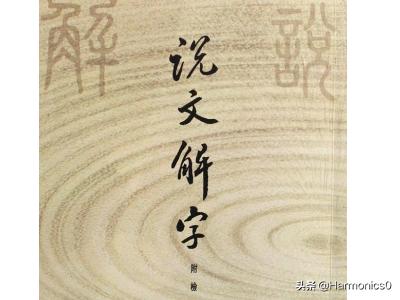 說
解
说文解字
附檢
头条@Harmonics0